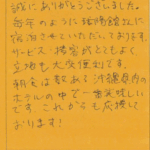 誠にありがとうございました。
毎年のように琉球館さんに
宿泊させていただいております。
サービス・接客共とてもよく、
立地も大変便利です。
朝食は数ある沖縄県内の
ホテルの中で一番美味しい
です。これからも応援して
おります!